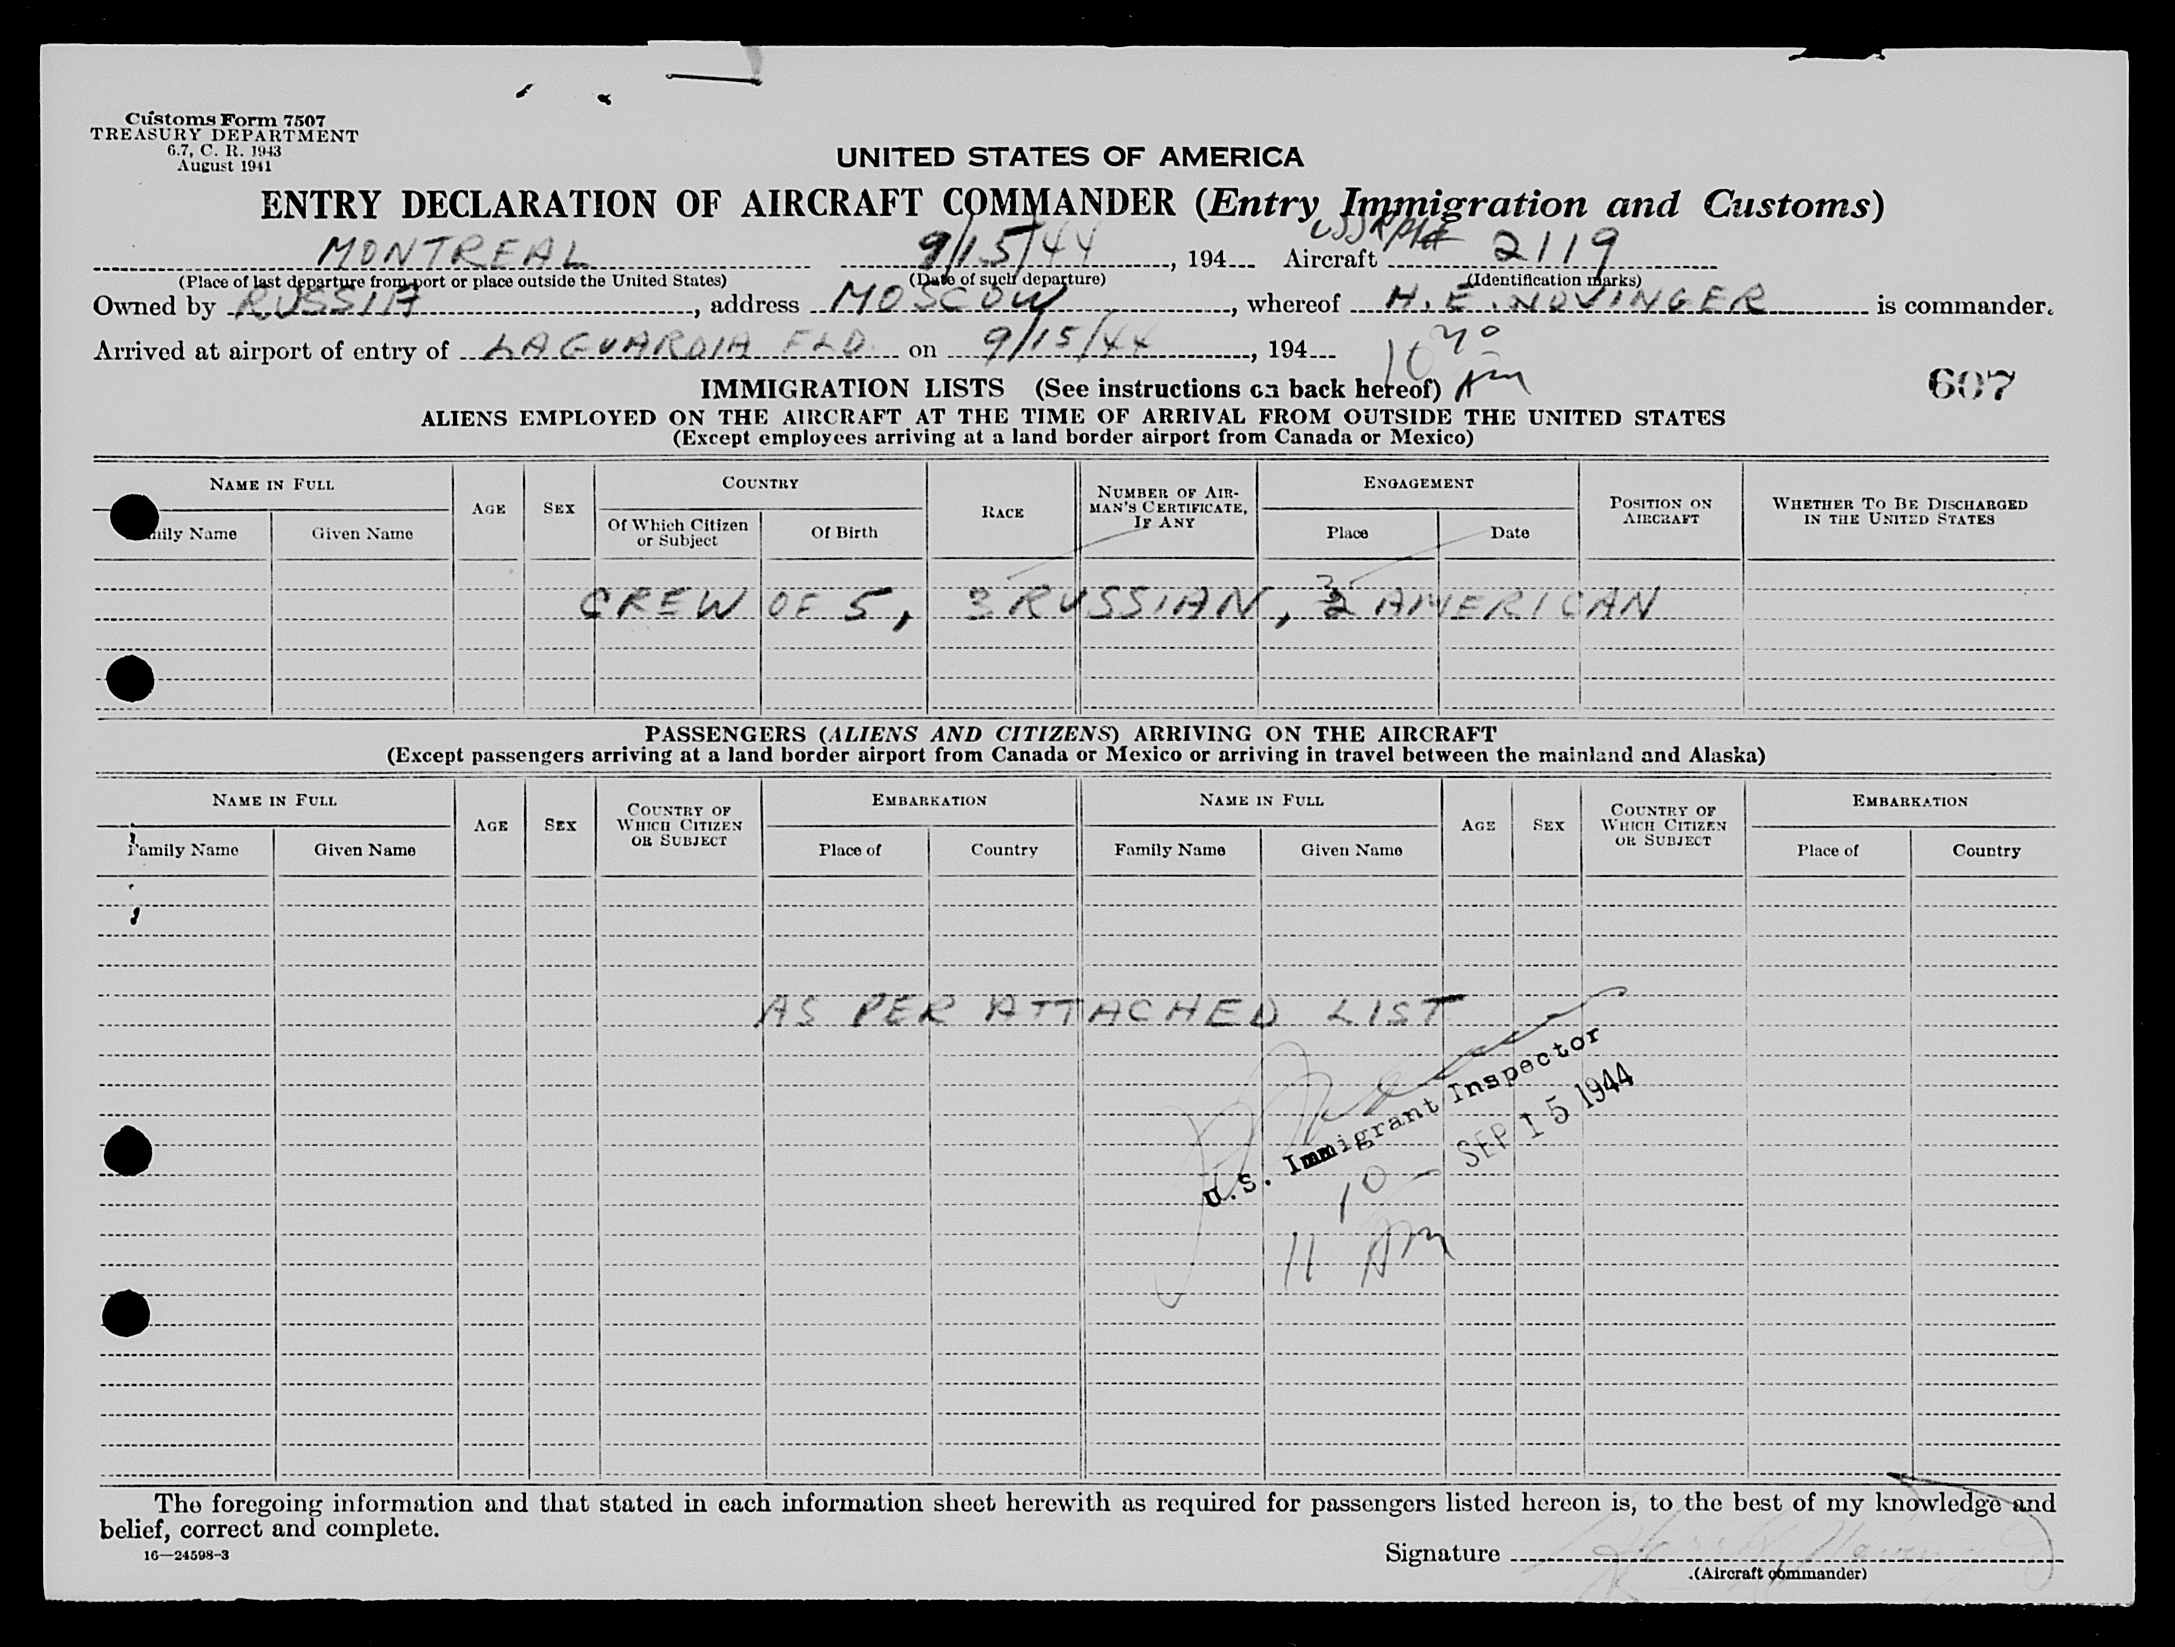 Customs Form 7507
TREASURY DEPARTMENT
6.7, C. R. 1943
August 1941
UNITED STATES OF AMERICA
ENTRY DECLARATION OF AIRCRAFT COMMANDER (Entry Immigration and Customs)
MONTREAL 9/15/44, 194 Aircraft 2119
(Place of last departure from port or place outside the United States) (Date of such departure) (Identification marks)
Owned by RUSSIA, address MOSCOW, whereof H. E. NOVINGER is commander.
Arrived at airport of entry of LAGUARDIA FLD. on 9/15/44, 194
10 40 AM
IMMIGRATION LISTS (See instructions on back hereof)
607
ALIENS EMPLOYED ON THE AIRCRAFT AT THE TIME OF ARRIVAL FROM OUTSIDE THE UNITED STATES
(Except employees arriving at a land border airport from Canada or Mexico)
NAME IN FULL AGE SEX COUNTRY RACE NUMBER OF AIRMAN'S CERTIFICATE, IF ANY ENGAGEMENT POSITION ON AIRCRAFT WHETHER TO BE DISCHARGED IN THE UNITED STATES
Name Given Name Of Which Citizen or Subject Of Birth Place Date
CREW OF 5, 3 RUSSIAN, 2 AMERICAN
PASSENGERS (ALIENS AND CITIZENS) ARRIVING ON THE AIRCRAFT
(Except passengers arriving at a land border airport from Canada or Mexico or arriving in travel between the mainland and Alaska)
NAME IN FULL AGE SEX COUNTRY OF WHICH CITIZEN OR SUBJECT EMBARKATION NAME IN FULL AGE SEX COUNTRY OF WHICH CITIZEN OR SUBJECT EMBARKATION
Family Name Given Name Place of Country Family Name Given Name Place of Country
AS PER ATTACHED LIST
U.S. Immigrant Inspector
SEP 15 1944
10 -
11 AM
The foregoing information and that stated in each information sheet herewith as required for passengers listed hereon is, to the best of my knowledge and
belief, correct and complete.
16—24598-3
Signature
(Aircraft commander)